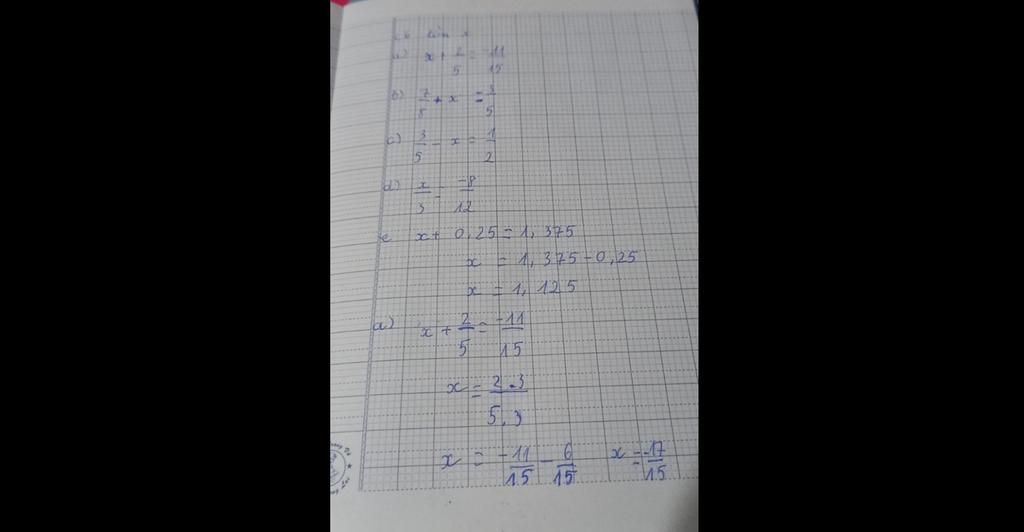 tìm x
a) x + 2/5 = -11/15
b) 7/8 + x = 3/5
c) 3/5 - x = 1/2
d) x/3 = -8/12
e x + 0,25 = 1,375
x = 1,375 - 0,25
x = 1,125
a) x + 2/5 = -11/15
x = 2.3/5.3
x = -11/15 - 6/15 x = -17/15